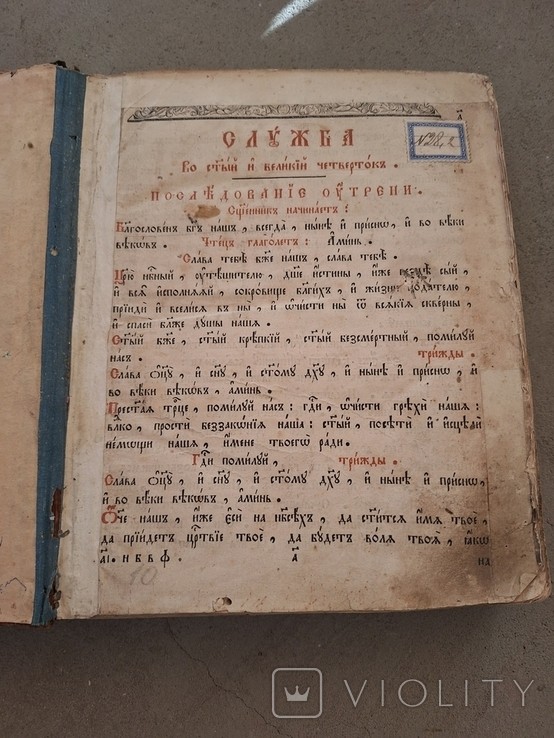 а҃
СЛУ́ЖБА
№28,2
Во ст҃ы́й и҆ вели́кїй четверто́къ .
ПОСЛѢ́ДОВАНЇЕ ОУ҆́ТРЕНИ .
Сщ҃е́нникъ начина́етъ :
Бл҃гослове́нъ бг҃ъ на́шъ , всегда̀ , ны́нѣ и҆ при́снѡ , и҆ во вѣ́ки
вѣкѡ́въ . Чте́цъ глаго́летъ : А҆ми́нь .
Сла́ва тебѣ̀ бж҃е на́шъ , сла́ва тебѣ̀ .
Цр҃ю̀ нбⷭ҇ный , оу҆тѣ́шителю , дш҃е и҆́стины , и҆́же вездѣ̀ сы́й ,
и҆ всѧ̑ и҆сполнѧ́ѧй , сокро́вище бл҃ги́хъ , и҆ жи́зни пода́телю ,
прїидѝ и҆ всели́сѧ въ ны̀ , и҆ ѡ҆чи́сти ны̀ ѿ всѧ́кїѧ скве́рны ,
и҆ спасѝ бл҃же ду́шы на́шѧ .
Ст҃ы́й бж҃е , ст҃ы́й крѣ́пкїй , ст҃ы́й безсме́ртный , поми́луй
на́съ . три́жды .
Сла́ва ѻ҆ц҃ꙋ̀ , и҆ сн҃ꙋ , и҆ ст҃о́мꙋ дх҃ꙋ , и҆ ны́нѣ и҆ при́снѡ , и҆
во вѣ́ки вѣкѡ́въ , а҆ми́нь .
Прест҃а́ѧ трⷪ҇це , поми́луй на́съ : гдⷭ҇и , ѡ҆чи́сти грѣхѝ на́шѧ :
влⷣко , простѝ беззакѡ́нїѧ на́шѧ : ст҃ы́й , посѣтѝ и҆ и҆сцѣлѝ
не́мѡщи на́шѧ , и҆́мене твоегѡ̀ ра́ди .
Гдⷭ҇и поми́луй , три́жды .
Сла́ва ѻ҆ц҃ꙋ̀ , и҆ сн҃ꙋ , и҆ ст҃о́мꙋ дх҃ꙋ , и҆ ны́нѣ и҆ при́снѡ ,
и҆ во вѣ́ки вѣкѡ́въ , а҆ми́нь .
Ѻ҆́ч҃е на́шъ , и҆́же є҆сѝ на нб҃сѣ́хъ , да ст҃и́тсѧ и҆́мѧ твоѐ ,
да прїи́детъ црⷭ҇твїе твоѐ , да бꙋ́детъ во́лѧ твоѧ̀ , ꙗ҆́кѡ
а҃і . н б в ф . а҃ на
10
VIOLITY